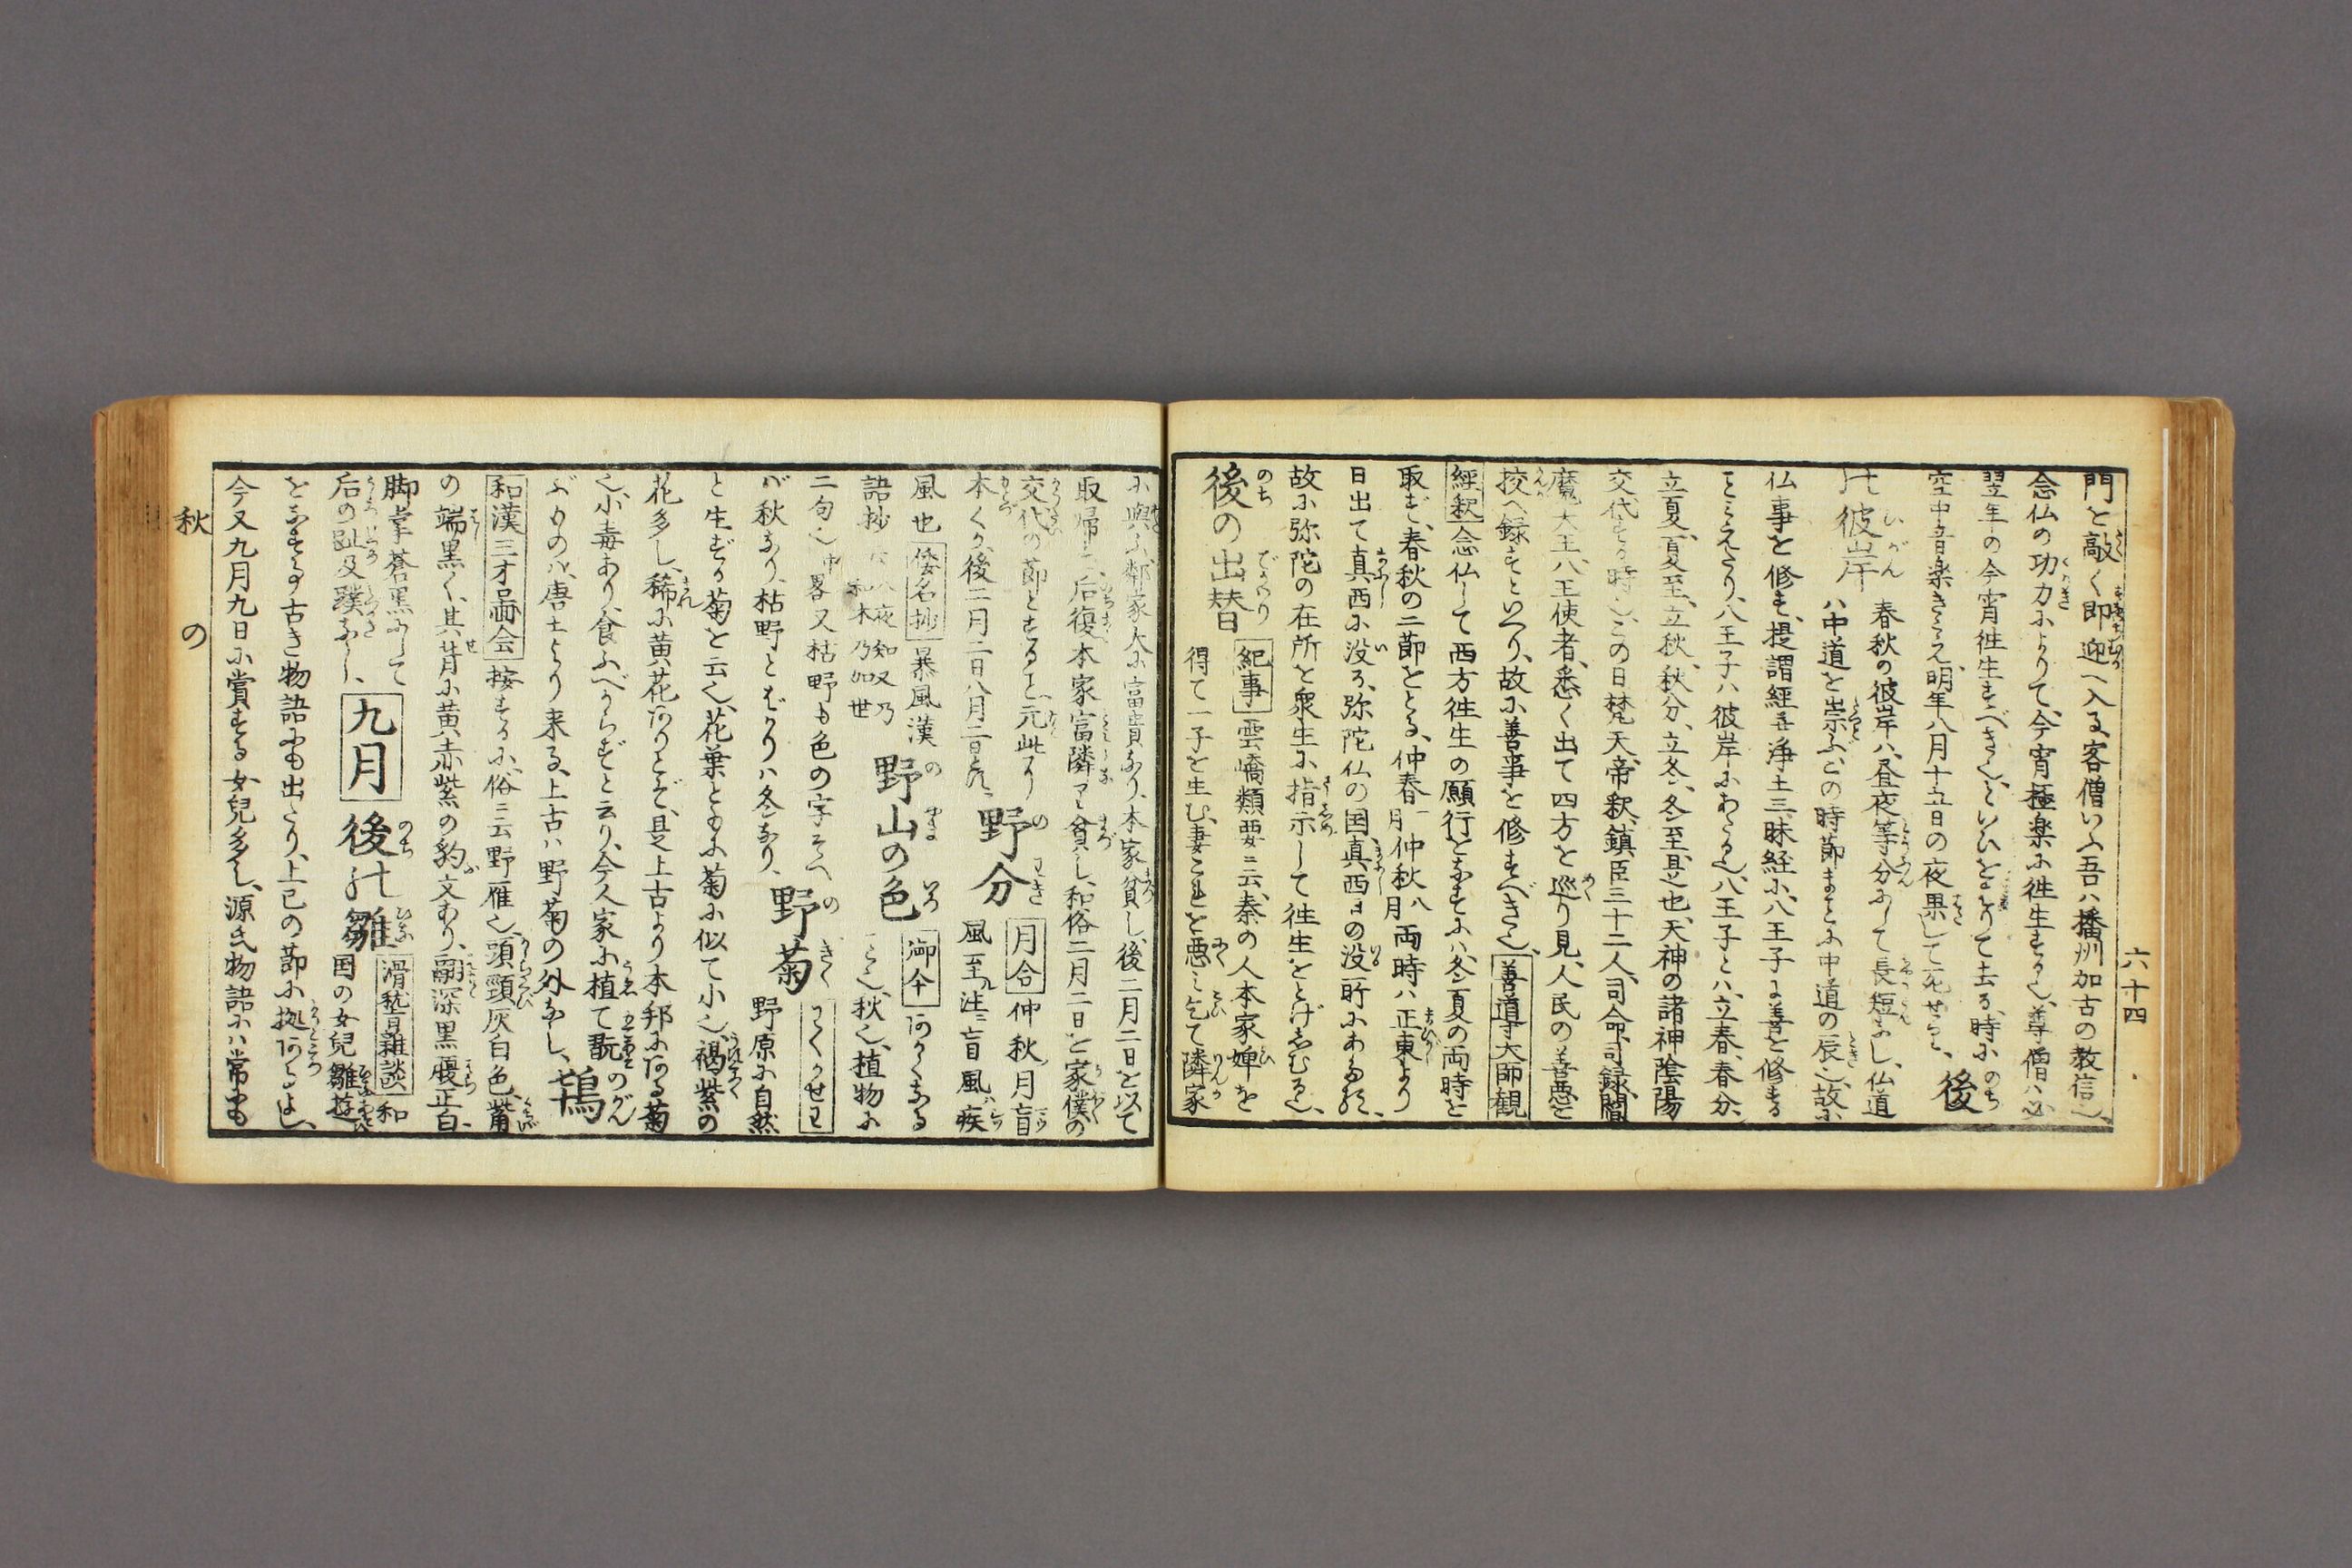 門を敲く即迎へ入る、客僧いふ吾ハ播州加古の教信也、
念仏の功力によりて、今宵極楽に徃生する也、尊僧ハ必
翌年の今宵徃生すべき也、といひをはりて去る、時に
空中音楽きこえ、明年八月十五日の夜果して死せらる、後
の彼岸 春秋の彼岸ハ、昼夜等分にして長短なし、仏道
ハ中道を崇ぶ、この時節まことに中道の辰也、故に
仏事を修す、提謂経并浄土三昧経に、八王子に善を修する
ことみえたり、八王子ハ彼岸にあたる也、八王子とハ、立春、春分、
立夏、夏至、立秋、秋分、立冬、冬至、是也、天神の諸神、陰陽
交代する時也、この日梵天、帝釈、鎮臣三十二人、司命、司録、閻
魔大王、八王使者、悉く出て四方を巡り見、人民の善悪を
挍へ録すといへり、故に善事を修すべき也、善導大師観
經釈 念仏して西方徃生の願行をなすに、冬夏の両時を
取ず、春秋の二節をとる、仲春二月仲秋八月両時ハ正東より
日出て真西に没る、弥陀仏の国、真西日の没所にあたる、
故に弥陀の在所を衆生に指示して徃生をとげしむる也、
後の出替 紀事 雲嶠類要ニ云、秦の人本家婢を
得て一子を生む、妻これを悪ミ乞て隣家
に與ふ、鄰家大に富貴なり、本家貧し、後二月二日を以て
取帰す、后復本家富隣家貧し、和俗二月二日を家僕の
交代の節とすること、元此より
本く、後二月二日八月二日 野分 月令 仲秋ノ月盲
風至ル、注ニ盲風ハ疾
風也 倭名抄 暴風漢
語抄 野山の色 御傘
秋也、植物に
二句也、中畧又枯野も色の字そへ
が秋なり、枯野とばかりハ冬なり、 野菊 野原に自然
と生ずる菊を云也、花葉ともに菊に似て小也、褐紫の
花多し、稀に黄花ありとぞ、是上古より本邦にある菊
也、小毒あり、食ふべからずと云り、今人家に植て翫
ぶものハ、唐土より来る、上古ハ野菊の外なし、鴇
和漢三才圖会 按ずるに、俗ニ云野雁也、頭頸灰白色、觜
の端黒く、其背に黄赤紫の豹文あり、翮深黒腹正白、
脚掌蒼黒にして
后の趾及蹼なし、 九月 後の雛 滑稽雑談 和
国の女兒雛遊
をなす事、古き物語にも出たり、上巳の節に拠あるよし、
今又九月九日に賞する女兒多し、源氏物語にハ常にも
秋 の
六十四